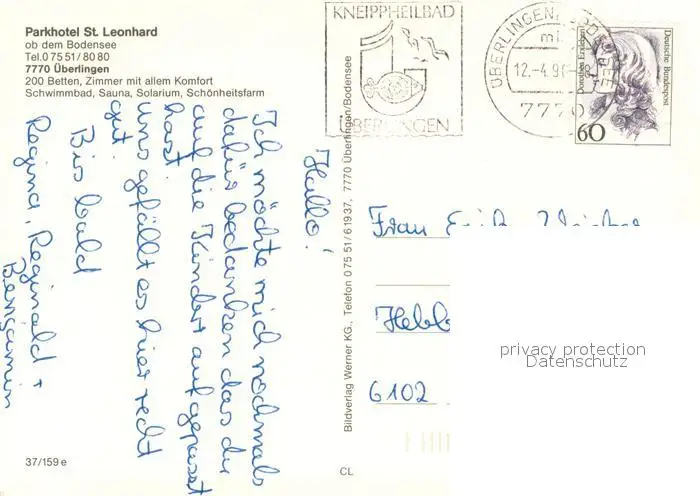 Parkhotel St. Leonhard
ob dem Bodensee
Tel. 0 75 51/80 80
7770 Überlingen
200 Betten, Zimmer mit allem Komfort
Schwimmbad, Sauna, Solarium, Schönheitsfarm
Hallo!
Ich möchte mich nochmals
dafür bedanken das du
auf die Kinder aufgepasst
hast.
uns gefällt es hier recht
gut.
Bis bald
Regina, Reginald +
Benjamin
37/159 e
KNEIPPHEILBAD
ÜBERLINGEN
ÜBERLINGEN, BODENSEE
12.-4.9
7770
Deutsche Bundespost
60
Bildverlag Werner KG., Telefon 0 75 51/6 19 37, 7770 Überlingen/Bodensee
CL
Frau
6102
privacy protection
Datenschutz